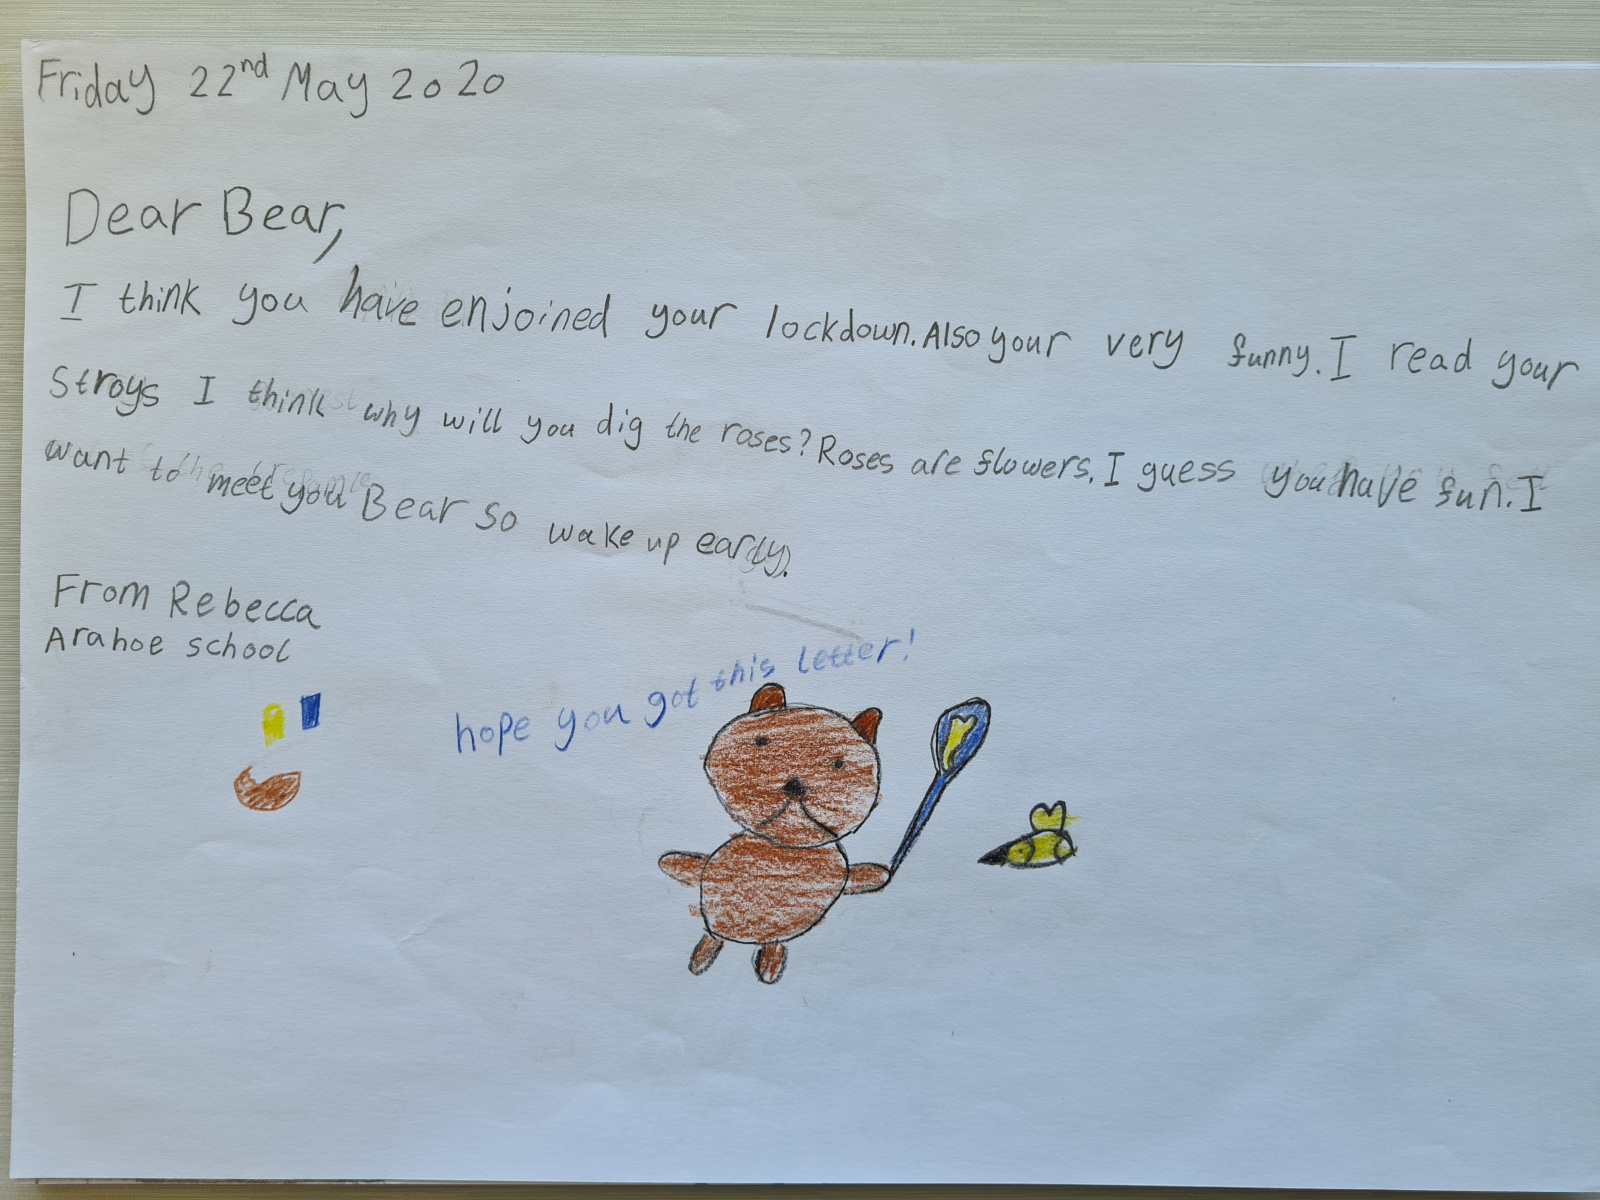 Friday 22nd May 2020
Dear Bear,
I think you have enjoined your lockdown. Also your very funny. I read your
stroys I think why will you dig the roses? Roses are flowers. I guess you have fun. I
want to meet you Bear so wake up eardy.
From Rebecca
Arahoe school
hope you got this letter!